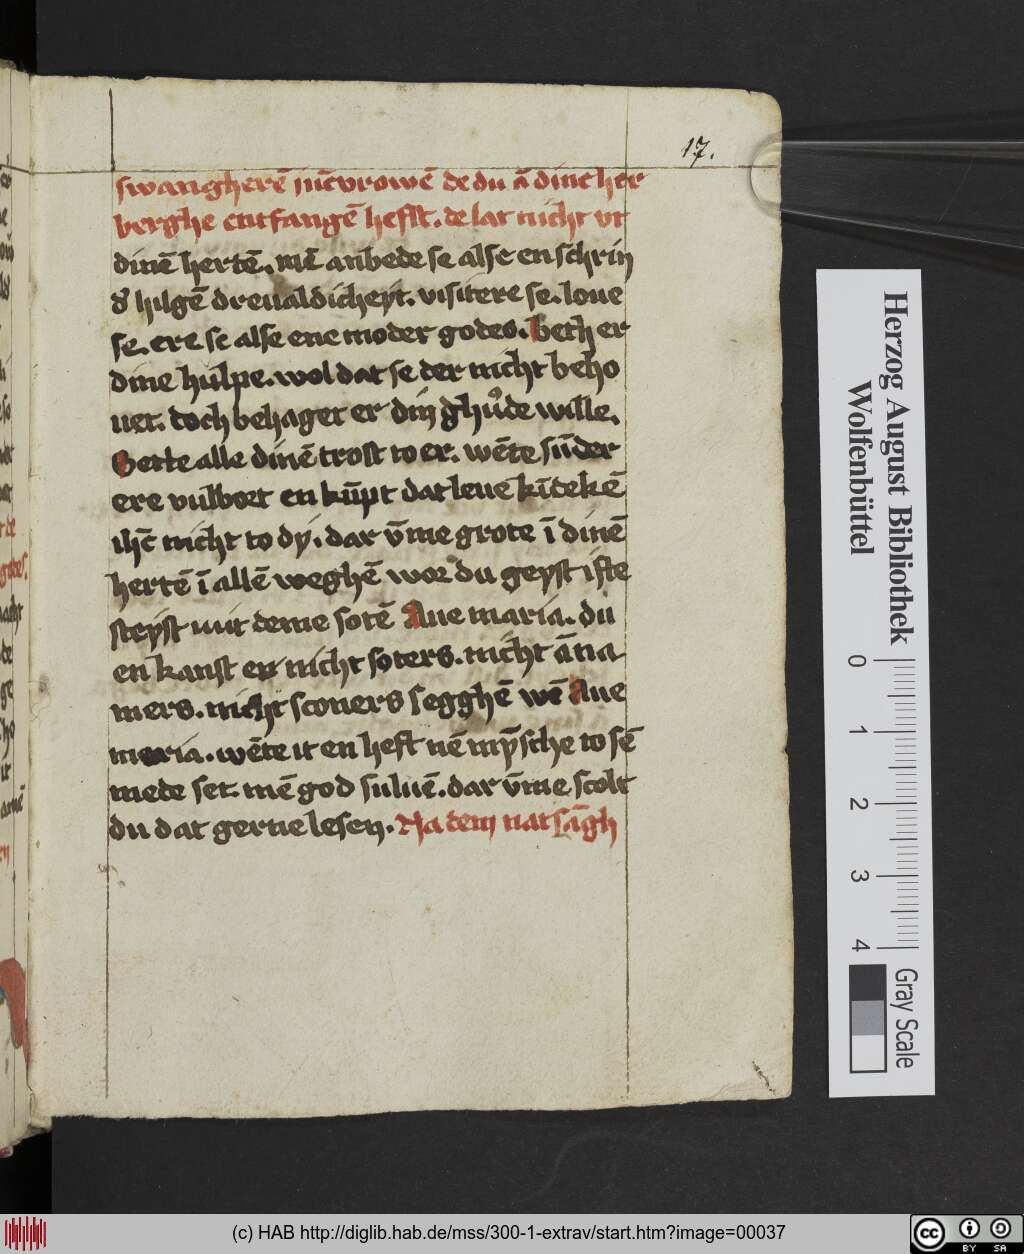 17.
swangherē jūcvrowē de du ā dine her
berghe entfangē hefst. de lat nicht vt
dinē hertē. mē anbede se alse en schrin
d' hilgē dreualdicheyt. visitere se. loue
se. ere se alse ene moder godes. beth er
dine hulpe. wol dat se der nicht beho
uet. doch behaget er din ghůde wille.
Sette alle dinē trost to er. wēte sūder
ere vulbort en kūpt dat leue kīdekē
ihc̄ nicht to dy. dar v̄me grote ī dinē
hertē ī allē weghē wor du geyst ifte
steyst mit deme sotē Aue maria. du
en kanst en nicht soters. nicht āna
mers. nicht sconers segghē wē Aue
maria. wēte it en heft nē mȳsche to sē
mede set. mē god suluē. dar v̄me scolt
du dat gerne lesen. Na dem natsāgh
Herzog August Bibliothek
Wolfenbüttel
0 1 2 3 4
Gray Scale
(c) HAB http://diglib.hab.de/mss/300-1-extrav/start.htm?image=00037
cc BY SA